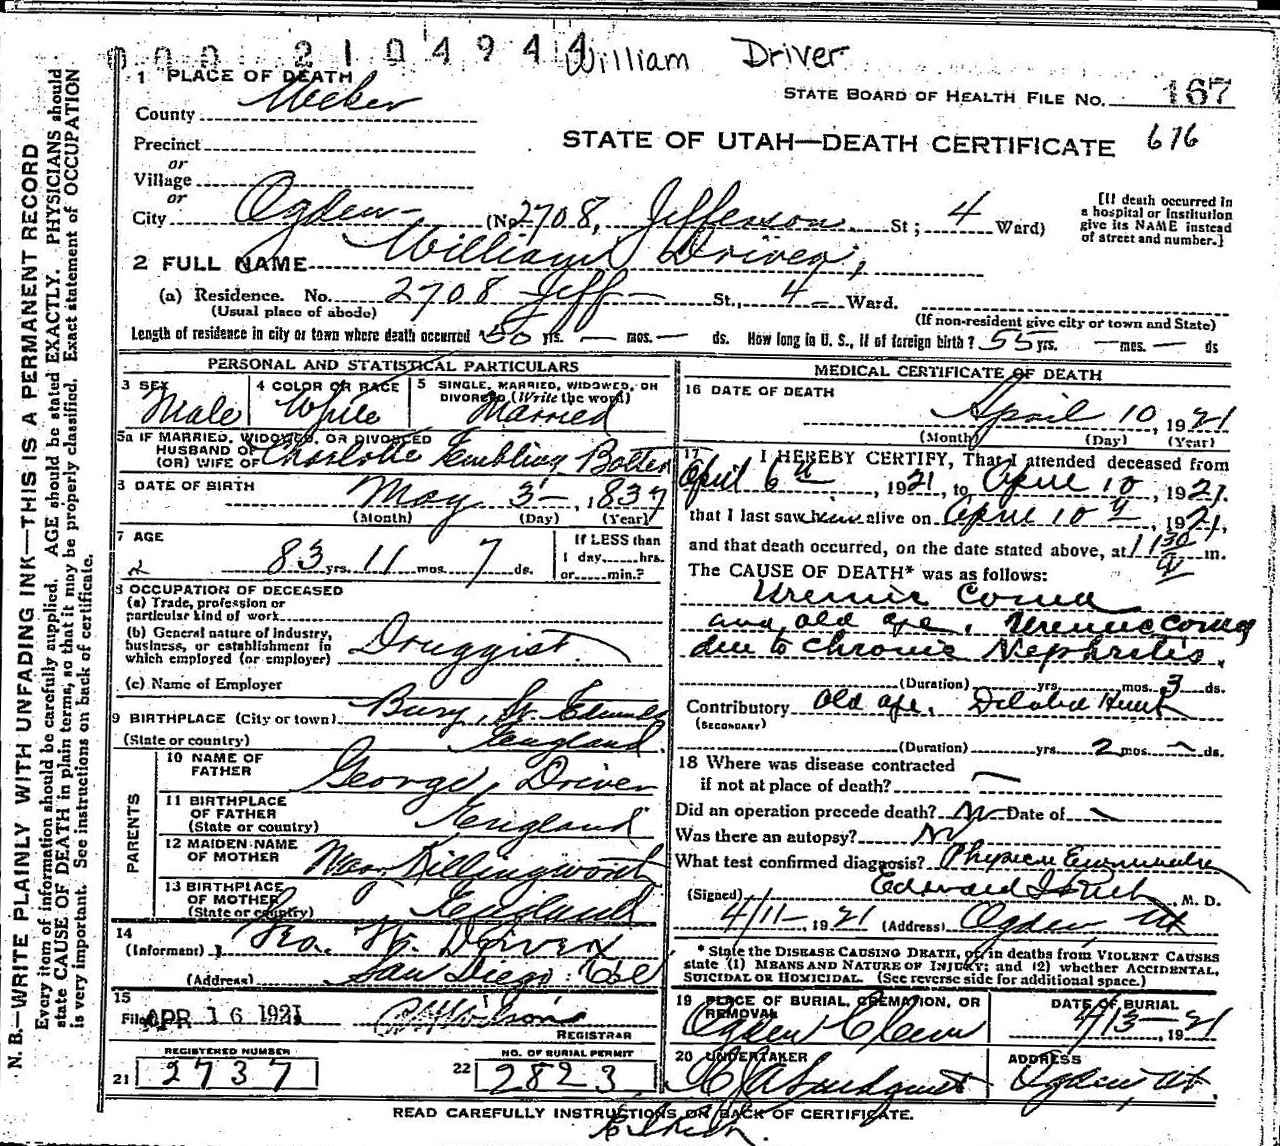 0002104944
William Driver
1 PLACE OF DEATH
County Weber
STATE BOARD OF HEALTH FILE No. 167
Precinct
STATE OF UTAH—DEATH CERTIFICATE 676
or
Village
or
City Ogden (No. 2708, Jefferson St; 4 Ward)
[If death occurred in a hospital or institution give its NAME instead of street and number.]
2 FULL NAME William Driver,
(a) Residence. No. 2708 Jeff St., 4 Ward.
(Usual place of abode)
(If non-resident give city or town and State)
Length of residence in city or town where death occurred 50 yrs. — mos. — ds. How long in U. S., if of foreign birth? 55 yrs. — mos. — ds
PERSONAL AND STATISTICAL PARTICULARS
3 SEX Male
4 COLOR OR RACE White
5 SINGLE, MARRIED, WIDOWED, OR DIVORCED (Write the word) Married
5a IF MARRIED, WIDOWED, OR DIVORCED
HUSBAND OF
(OR) WIFE OF Charlotte Embling Botten
DATE OF BIRTH May 3 — , 1837
(Month) (Day) (Year)
7 AGE 83 yrs. 11 mos. 7 ds.
If LESS than
1 day,......hrs.
or......min.?
OCCUPATION OF DECEASED
(a) Trade, profession or
particular kind of work
(b) General nature of industry,
business, or establishment in
which employed (or employer) Druggist.
(c) Name of Employer
9 BIRTHPLACE (City or town) Bury, St. Edmunds
(State or country) England.
PARENTS
10 NAME OF FATHER George Driver
11 BIRTHPLACE OF FATHER (State or country) England
12 MAIDEN NAME OF MOTHER Killingworth
13 BIRTHPLACE OF MOTHER (State or country) England
14
(Informant) Geo. W. Driver
(Address) San Diego Cal
15
Filed APR 16 1921
REGISTRAR
21 REGISTERED NUMBER 2737
22 NO. OF BURIAL PERMIT 2823
MEDICAL CERTIFICATE OF DEATH
16 DATE OF DEATH
April 10, 1921
(Month) (Day) (Year)
17 I HEREBY CERTIFY, That I attended deceased from
April 6th, 1921, to April 10, 1921.
that I last saw him alive on April 10th, 1921,
and that death occurred, on the date stated above, at 1130 m.
The CAUSE OF DEATH* was as follows:
Uremic Coma
and old age. Uremic coma
due to Chronic Nephritis.
(Duration) yrs. mos. 3 ds.
Contributory Old age. Dilated Heart
(SECONDARY)
(Duration) yrs. 2 mos. — ds.
18 Where was disease contracted
if not at place of death? —
Did an operation precede death? No Date of
Was there an autopsy? No
What test confirmed diagnosis? Physical Examination
(Signed) Edward I. Rich, M. D.
4/11, 1921 (Address) Ogden, Ut
* State the DISEASE CAUSING DEATH, or in deaths from VIOLENT CAUSES
state (1) MEANS AND NATURE OF INJURY; and (2) whether ACCIDENTAL,
SUICIDAL OR HOMICIDAL. (See reverse side for additional space.)
19 PLACE OF BURIAL, CREMATION, OR REMOVAL Ogden Cem
DATE OF BURIAL 4/13 — , 1921
20 UNDERTAKER
ADDRESS Ogden, Ut.
READ CAREFULLY INSTRUCTIONS ON BACK OF CERTIFICATE.
N. B.—WRITE PLAINLY WITH UNFADING INK—THIS IS A PERMANENT RECORD
Every item of information should be carefully supplied. AGE should be stated EXACTLY. PHYSICIANS should
state CAUSE OF DEATH in plain terms, so that it may be properly classified. Exact statement of OCCUPATION
is very important. See instructions on back of certificate.